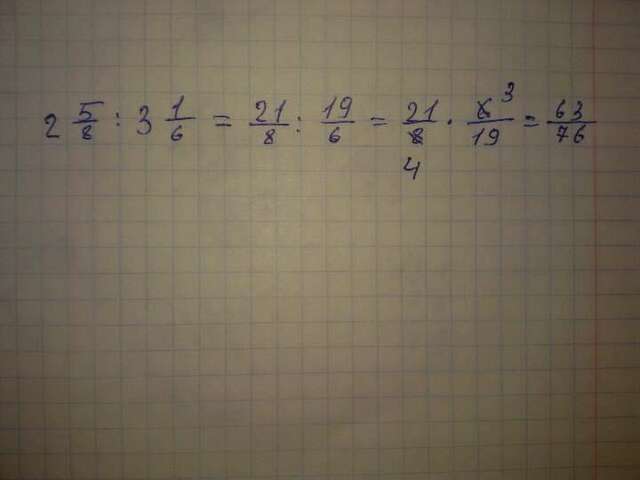 2 5/8 : 3 1/6 = 21/8 : 19/6 = 21/8 · 6/19 = 63/76
3
4